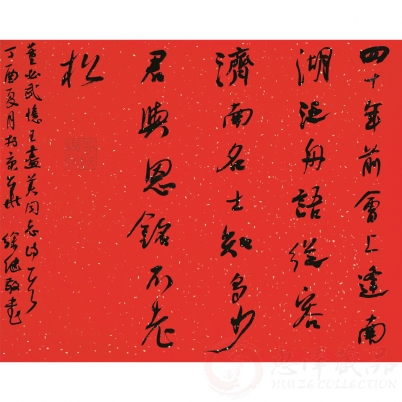 四十年前會上逢南
湖泛舟語從容
濟南名士知多少
君與恩銘不老
松
董必武憶王盡美同志詩一首
丁酉夏月於京華
藏品
HUIZE COLLECTION